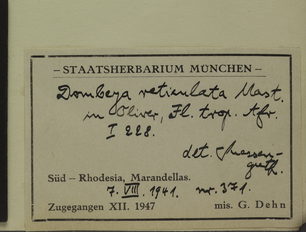 – STAATSHERBARIUM MÜNCHEN –
Dombeya reticulata Mast.
in Oliver, Fl. trop. Afr.
I 228.
det. Suessen-
guth.
Süd – Rhodesia, Marandellas.
7. VIII. 1941. nr. 371.
Zugegangen XII. 1947 mis. G. Dehn